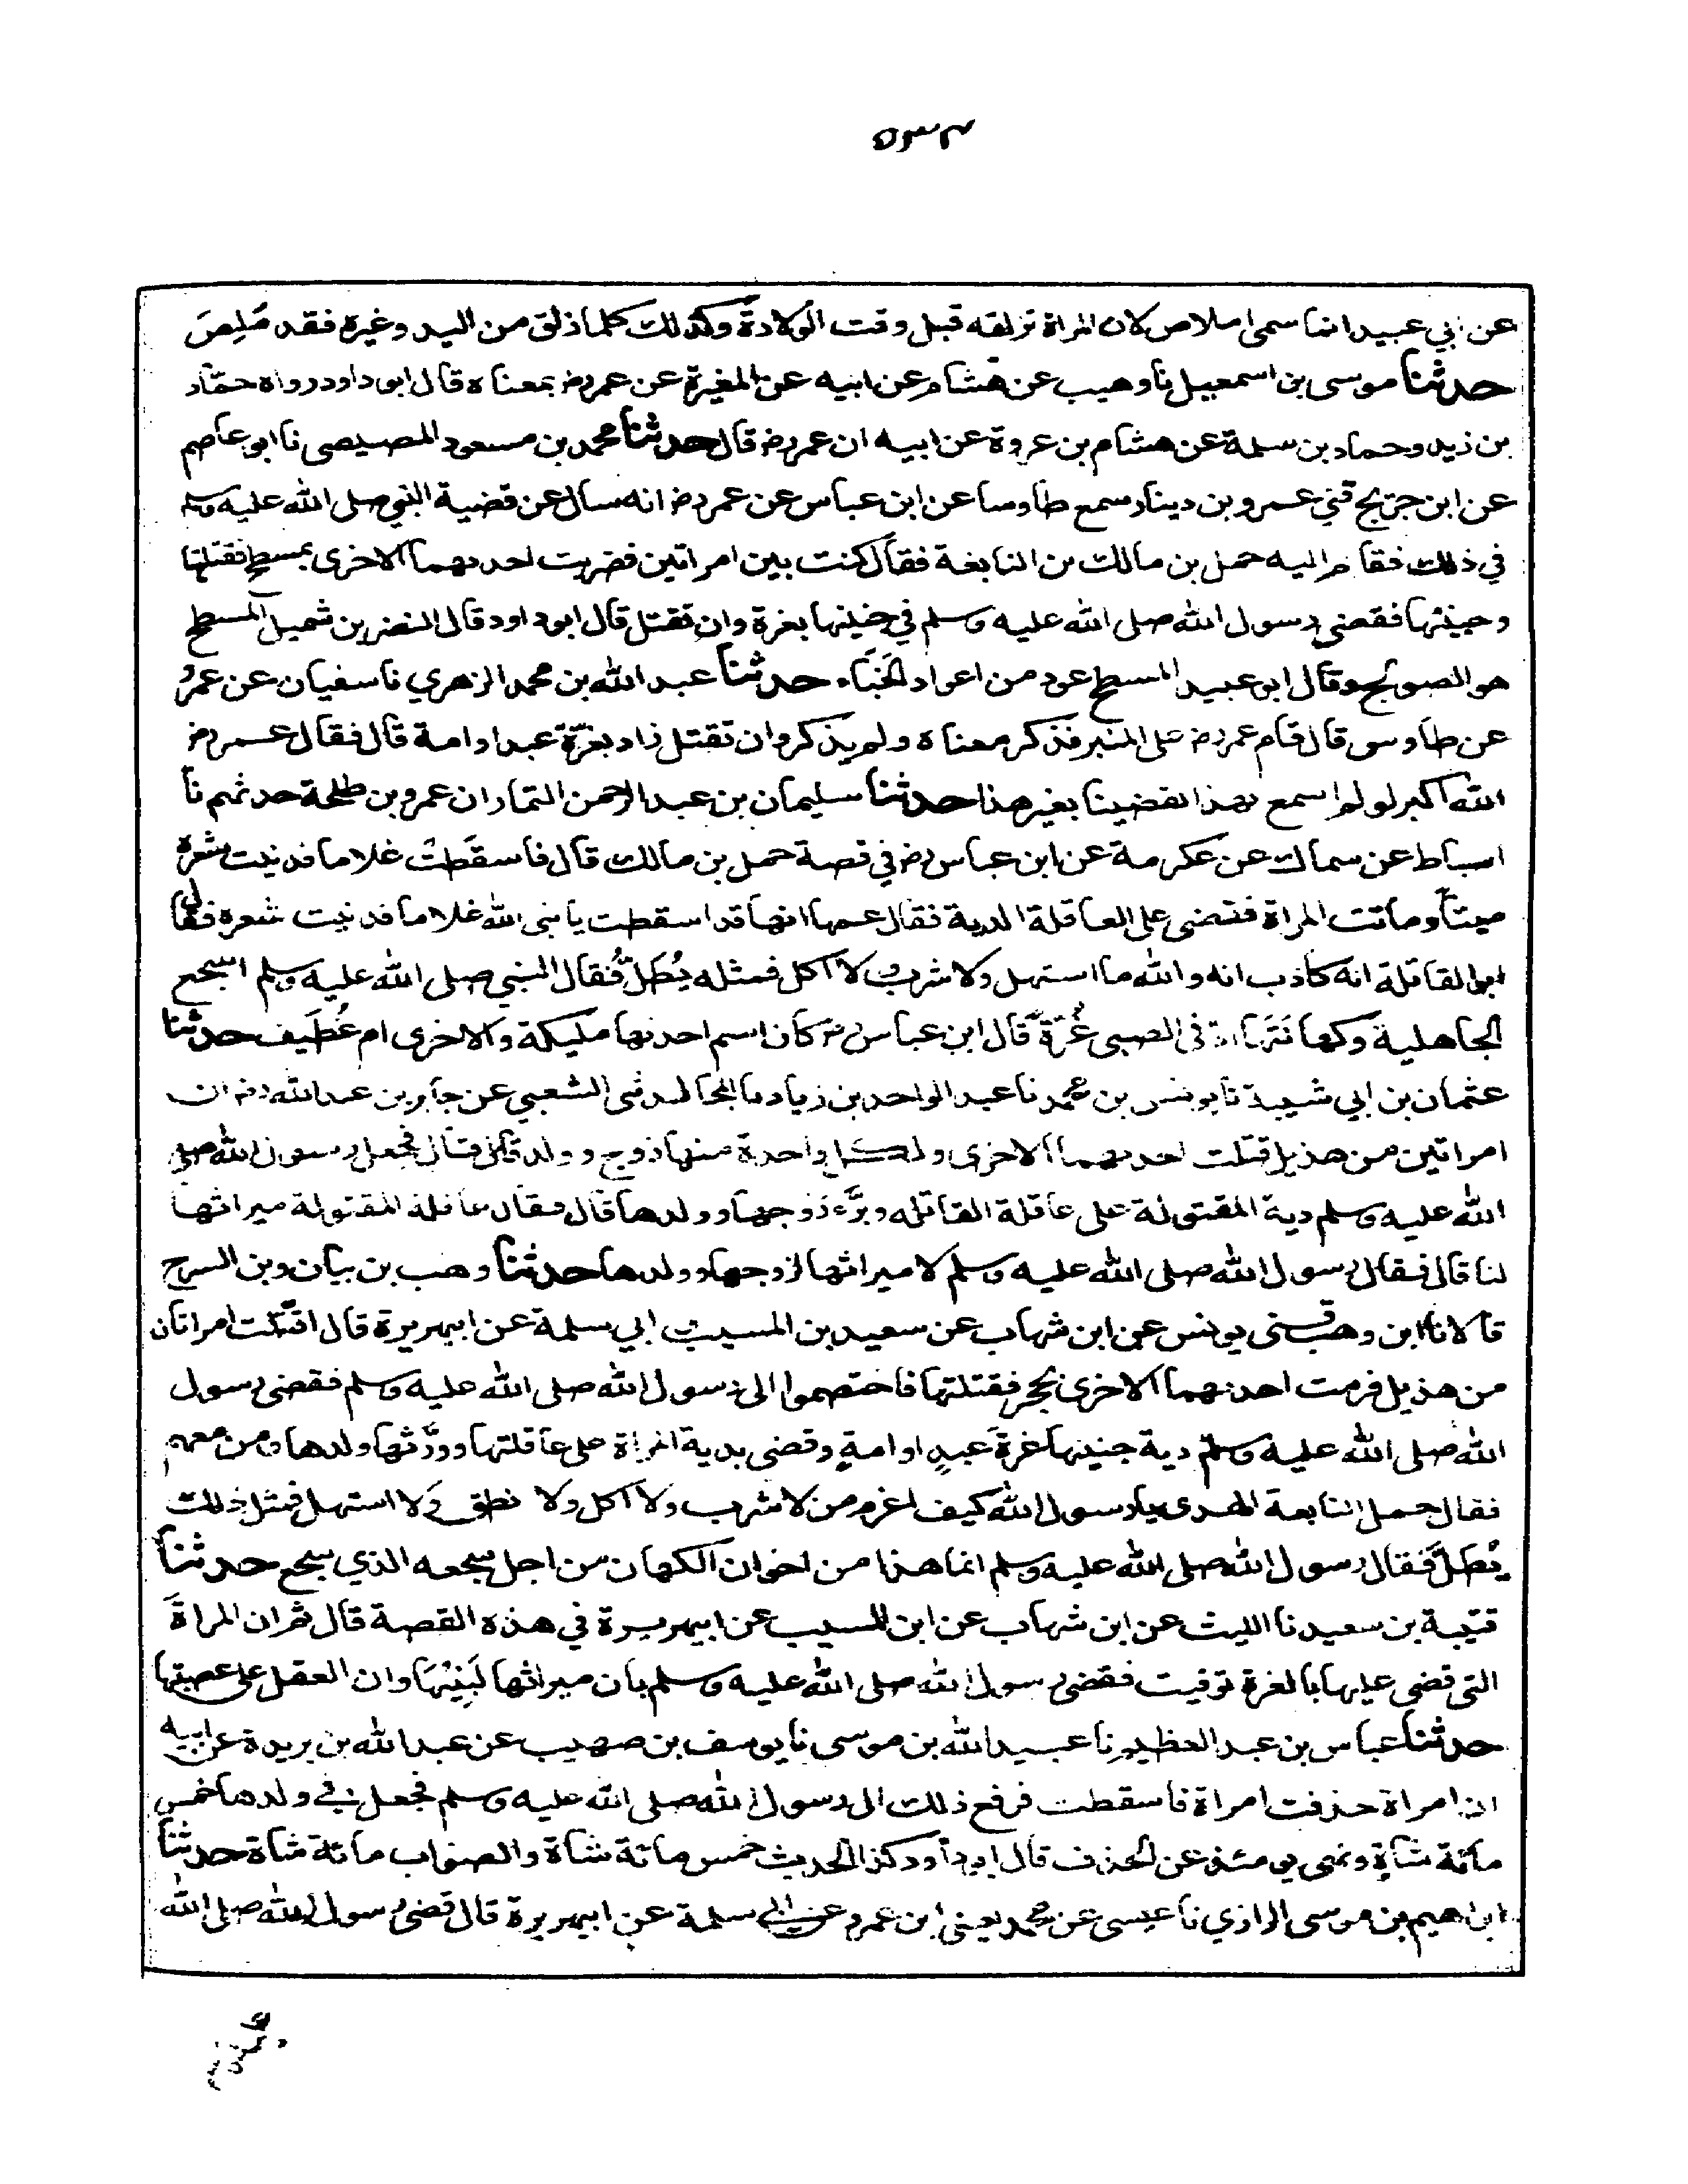 عن ابي عبيد انما سمى املاص لان المراة تزلقه قبل وقت الولادة وكذلك كلما ذلق من اليد وغيره فقد مَلِصَ
حدثنا موسى بن اسمعيل نا وهيب عن هشام عن ابيه عن المغيرة عن عمر رض بمعناه قال ابو داود رواه حمّاد
بن زيد وحماد بن سلمة عن هشام بن عروة عن ابيه ان عمر رض قال حدثنا محمد بن مسعود المصيصي نا ابو عاصم
عن ابن جريج قني عمرو بن دينار سمع طاوسا عن ابن عباس عن عمر رض انه سال عن قضية النبي صلى الله عليه وسلم
في ذلك فقام اليه حمل بن مالك بن النابغة فقال كنت بين امراتين فضربت احديهما الاخرى بمسطح فقتلتها
وجنينها فقضى رسول الله صلى الله عليه وسلم في جنينها بغرة وان تقتل قال ابو داود قال النضر بن شميل المسطح
هو الصوبج وقال ابو عبيد المسطح عود من اعواد الخَبَاء حدثنا عبد الله بن محمد الزهري نا سفيان عن عمرٍو
عن طاوس قال قام عمر رض على المنبر فذكر معناه ولم يذكر وان تقتل زاد بغرّة عبد او امة قال فقال عمر رض
الله اكبر لو لم اسمع بهذا لقضينا بغير هذا حدثنا سليمان بن عبد الرحمن التمار ان عمرو بن طلحة حدثهم نا
اسباط عن سماك عن عكرمة عن ابن عباس رض في قصة حمل بن مالك قال فاسقَطَتْ غلاما قد نبت شعره
ميتاً وماتت المراة فقضى على العاقلة الدية فقال عمها انها قد اسقطت يا نبي الله غلاما قد نبت شعره فقال
ابو القاتلة انه كاذب انه والله ما استهل ولا شرب ولا اكل فمثله يُطَلّ فقال النبي صلى الله عليه وسلم اسجع
الجاهلية وكهانَتَها في الصبي غُرّةً قال ابن عباس رض كان اسم احديهما مليكة والاخرى ام غُطَيف حدثنا
عثمان بن ابي شيبة نا يونس بن محمد نا عبد الواحد بن زياد نا المجالد ثنى الشعبي عن جابر بن عبد الله رض ان
امراتين من هذيل قتلت احديهما الاخرى ولكل واحدة منهما زوج وولد قال فجعل رسول الله صلى
الله عليه وسلم دية المقتولة على عاقلة القاتله وبرّء زوجها وولدها قال فقال عاقلة المقتولة ميراثها
لنا قال فقال رسول الله صلى الله عليه وسلم لا ميراثها لزوجها وولدها حدثنا وهب بن بيان وبن السرح
قالا نا ابن وهب قثنى يونس عن ابن شهاب عن سعيد بن المسيب وابي سلمة عن ابيهريرة قال اقتتلت امراتان
من هذيل فرمت احديهما الاخرى بحجر فقتلتها فاختصموا الى رسول الله صلى الله عليه وسلم فقضى رسول
الله صلى الله عليه وسلم دية جنينها غرةَ عبدٍ او امةٍ وقضى بدية المراة على عاقلتها وورّثها ولدها ومن معهم
فقال حمل النابعة الهدى يا رسول الله كيف اغرم من لا شرب ولا اكل ولا نطق ولا استهل فمثل ذلك
يُطَلّ فقال رسول الله صلى الله عليه وسلم انما هذا من اخوان الكهان من اجل سجعه الذي سجع حدثنا
قتيبة بن سعيد نا الليث عن ابن شهاب عن ابن المسيب عن ابيهريرة في هذه القصة قال ثم ان المراةَ
التي قضى عليها بالغرة توفيت فقضى رسول الله صلى الله عليه وسلم بان ميراثها لبَنِيْهَا وان العقل على عصبتها
حدثنا عباس بن عبد العظيم نا عبيد الله بن موسى نا يوسف بن صهيب عن عبد الله بن بريدة عن ابيه
ان امراة حذفت امراة فاسقطت فرفع ذلك الى رسول الله صلى الله عليه وسلم فجعل في ولدها خمس
مائة شاةٍ ونهى يومئذ عن الحذف قال ابو داود كذا الحديث خمس مائة شاة والصواب مائة شاة حدثنا
ابراهيم بن موسى الرازي نا عيسى عن محمد يعني ابن عمرو عن ابي سلمة عن ابيهريرة قال قضى رسول الله صلى الله